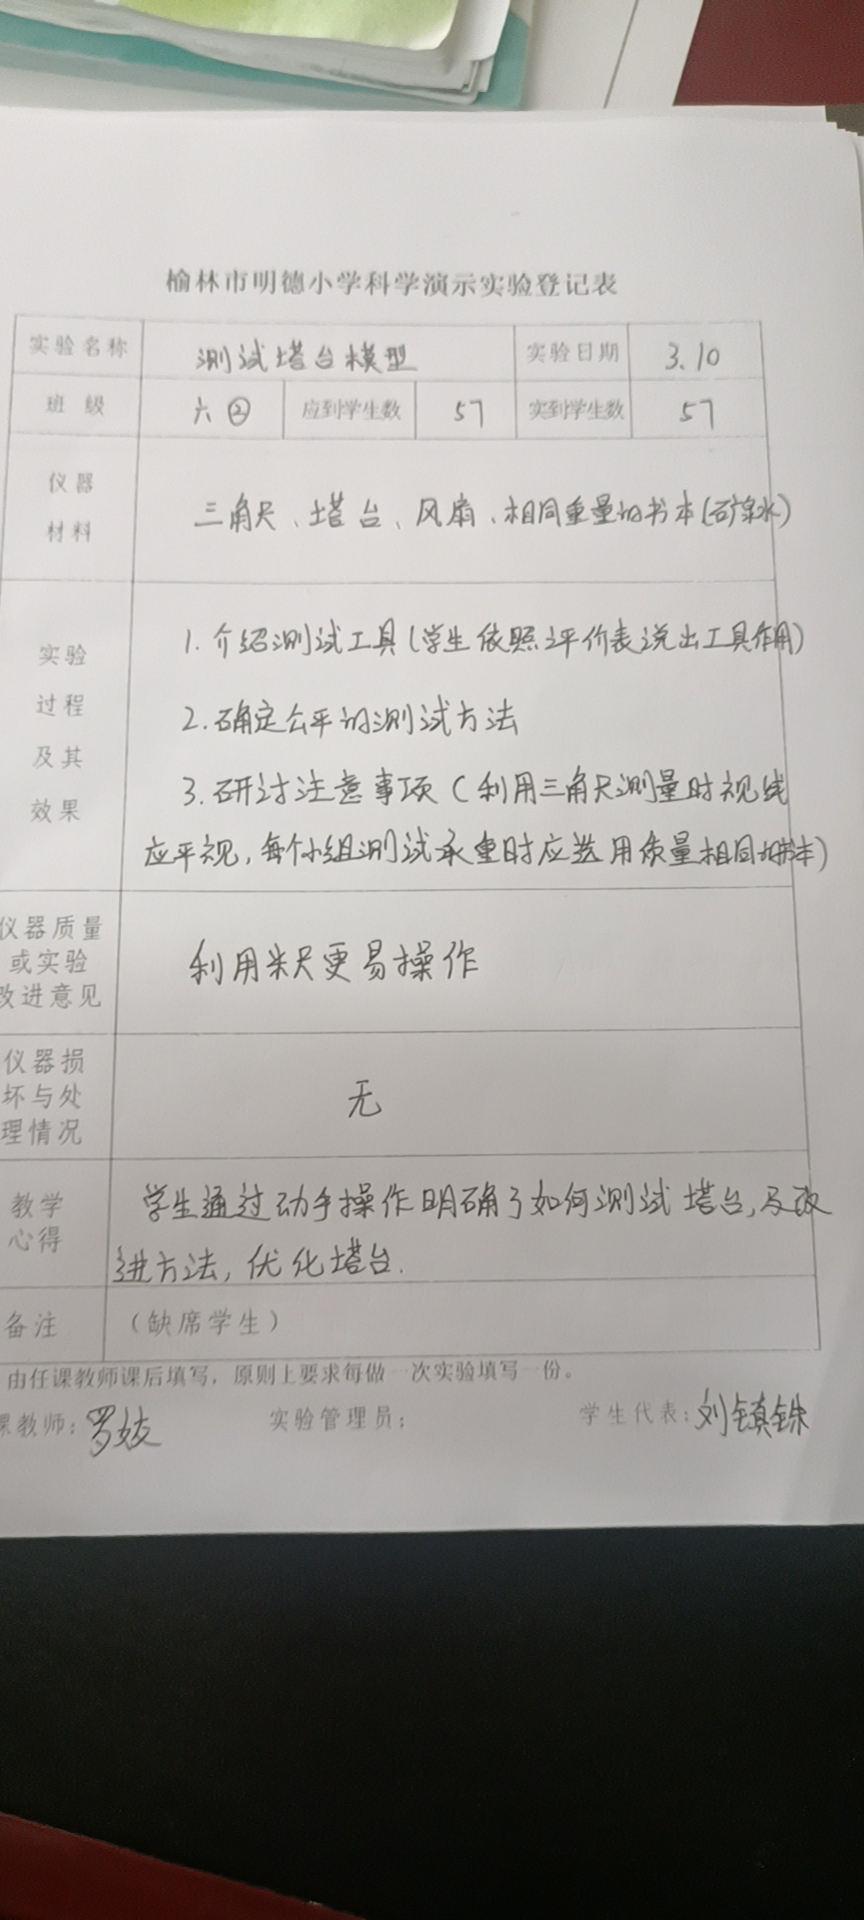 榆林市明德小学科学演示实验登记表
实验名称 测试塔台模型 实验日期 3.10
班级 六② 应到学生数 57 实到学生数 57
仪器
材料
三角尺、塔台、风扇、相同重量的书本(矿泉水)
实验
过程
及其
效果
1.介绍测试工具(学生依照评价表说出工具作用)
2.确定公平的测试方法
3.研讨注意事项(利用三角尺测量时视线
应平视,每个小组测试承重时应选用质量相同的书本)
仪器质量
或实验
改进意见
利用米尺更易操作
仪器损
坏与处
理情况
无
教学
心得
学生通过动手操作明确了如何测试塔台,及改
进方法,优化塔台.
备注 (缺席学生)
由任课教师课后填写,原则上要求每做一次实验填写一份。
课教师: 罗 实验管理员: 学生代表:刘镇铢